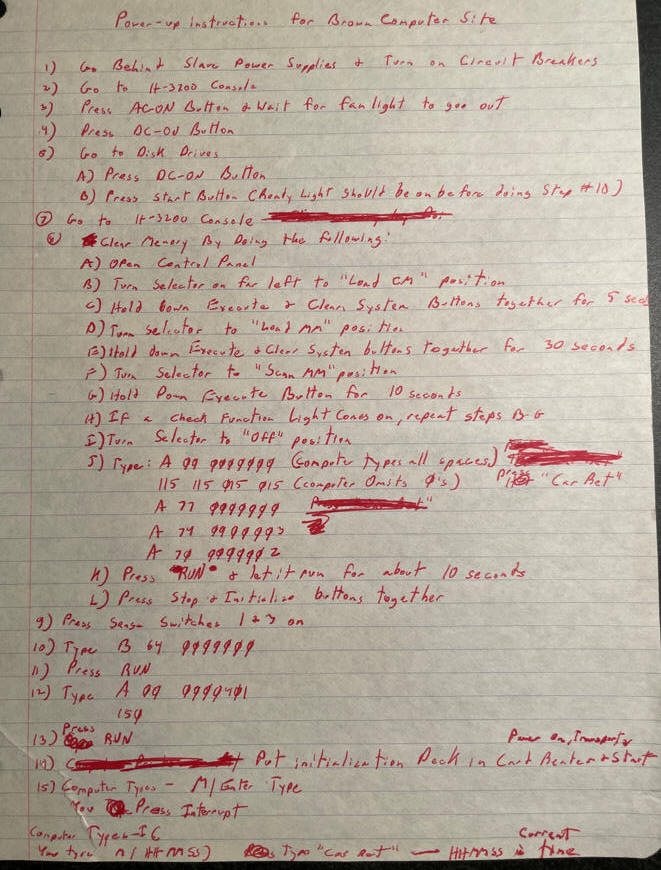 Power-up instructions for Brown Computer Site
1) Go Behind Slave Power Supplies & Turn on Circuit Breakers
2) Go to H-3200 Console
3) Press AC-ON Button & Wait for fan light to goo out
4) Press DC-ON Button
6) Go to Disk Drives
A) Press DC-ON Button
B) Press Start Button (Ready Light should be on before doing Step #10)
7) Go to H-3200 Console
8) Clear Memory By Doing the following:
A) Open Control Panel
B) Turn Selector on far left to "Load CM" position
C) Hold Down Execute & Clear System Buttons together for 5 sec
D) Turn Selector to "Load MM" position
E) Hold down Execute & Clear System buttons together for 30 seconds
F) Turn Selector to "Scan MM" position
G) Hold Down Execute Button for 10 seconds
H) If a Check Function Light Comes on, repeat steps B-G
I) Turn Selector to "Off" position
J) Type: A ØØ ØØØØØØØ (Computer types all spaces)
115 115 Ø15 Ø15 (computer Omits Ø's) Press "Car Ret"
A 77 ØØØØØØØ
A 74 ØØØØØØ3
A 7Ø ØØØØØØ2
K) Press "RUN" & let it run for about 10 seconds
L) Press Stop & Initialize buttons together
9) Press Sense Switches 1 & 3 on
10) Type B 64 ØØØØØØØ
11) Press RUN
12) Type A ØØ ØØØØ4Ø1
15Ø
13) Press RUN
Power On, Transport &
14) Put initialization Deck in Card Reader & Start
15) Computer Types - M/Enter Type
You Press Interrupt
Computer Types - IC
You type M/HHMMSS) Type "Car Ret" — HHMMSS is Current time